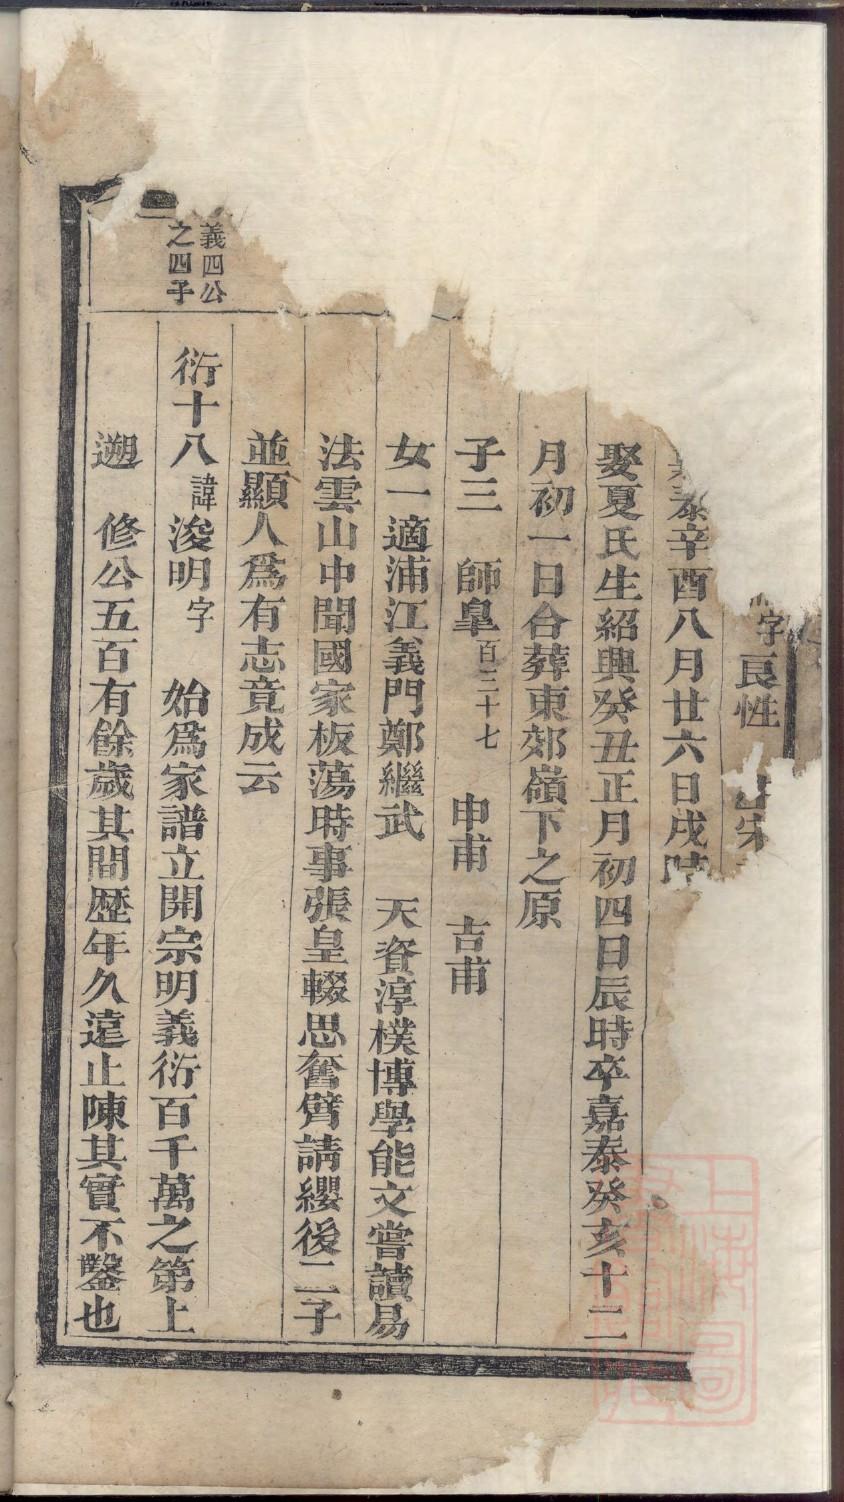 字良性
泰辛酉八月廿六日戌時
娶夏氏生紹興癸丑正月初四日辰時卒嘉泰癸亥十二
月初一日合葬東郊嶺下之原
子三　師皇百三十七　申甫　吉甫
女一適浦江義門鄭繼武　天資淳樸博學能文嘗讀易
法雲山中聞國家板蕩時事張皇輟思奮臂請纓後二子
並顯人爲有志竟成云
義四公
之四子
衍十八諱浚明字　始爲家譜立開宗明義衍百千萬之第上
遡　修公五百有餘歲其間歷年久遠止陳其實不鑿也